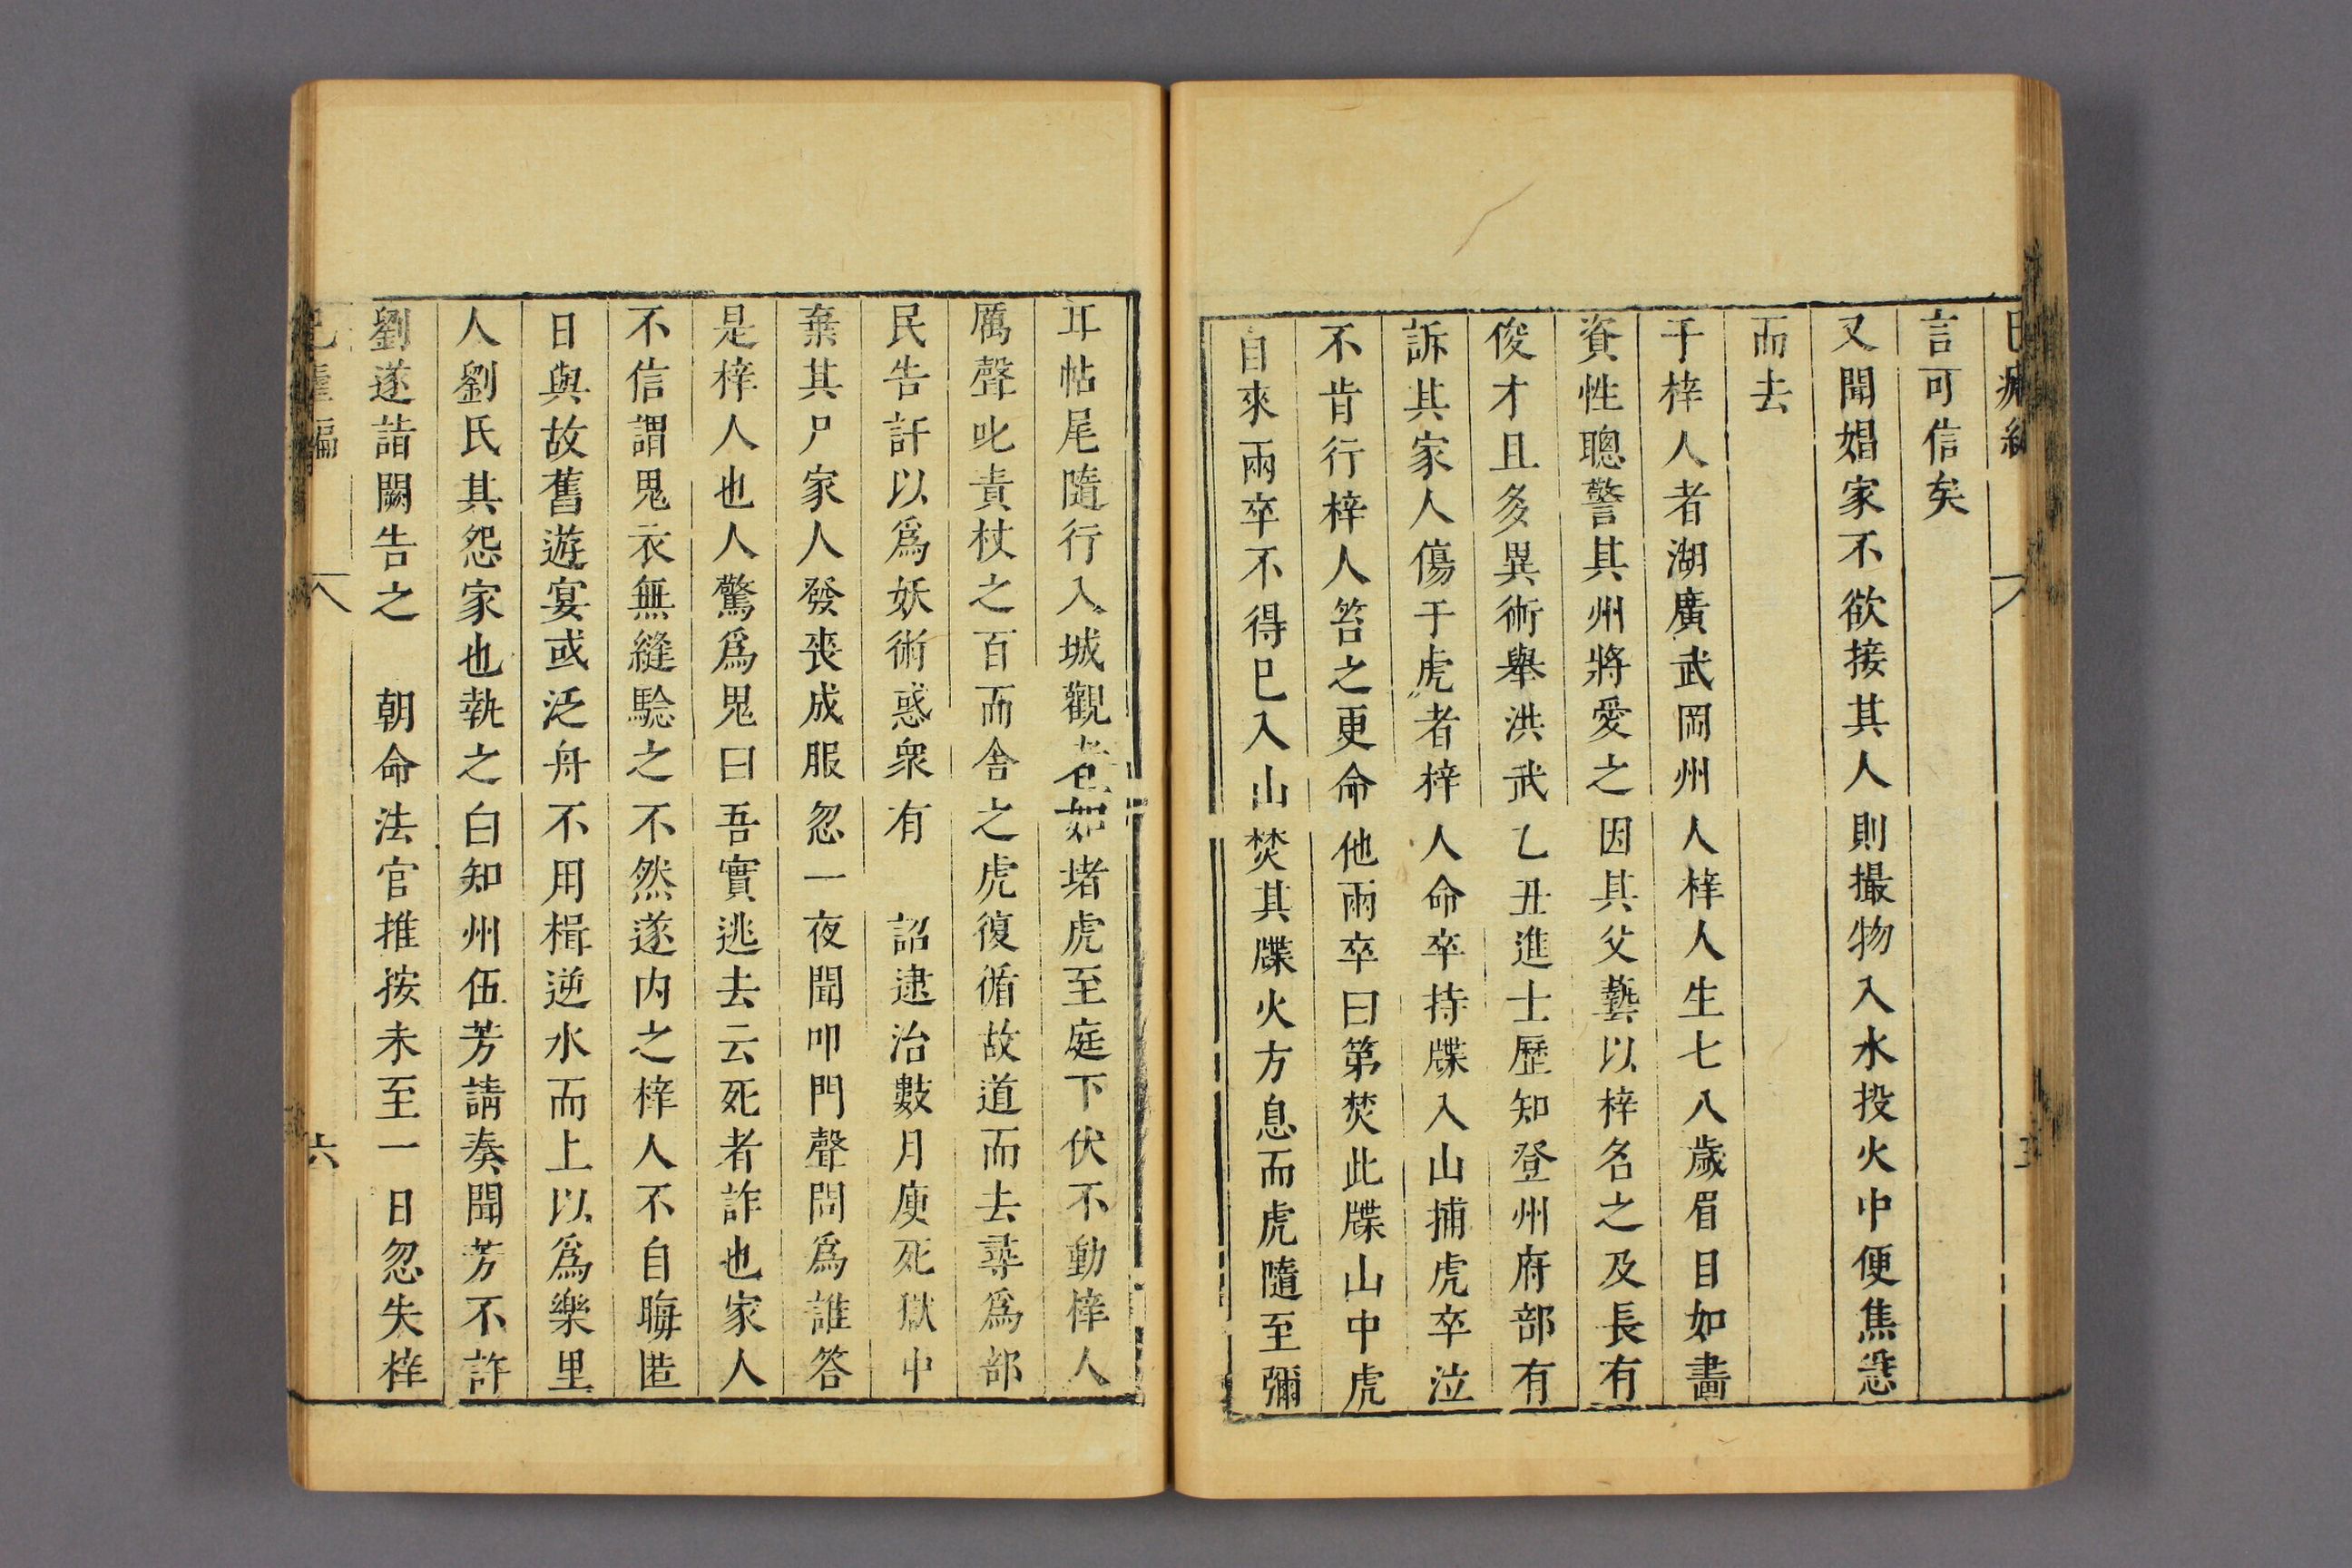 言可信矣
又聞娼家不欲接其人則撮物入水投火中便焦恐
而去
于梓人者湖廣武岡州人梓人生七八歲眉目如畵
資性聰警其州將愛之因其父藝以梓名之及長有
俊才且多異術舉洪武乙丑進士歷知登州府部有
訴其家人傷于虎者梓人命卒持牒入山捕虎卒泣
不肯行梓人笞之更命他兩卒曰第焚此牒山中虎
自來兩卒不得已入山焚其牒火方息而虎隨至彌
耳帖尾隨行入城觀者如堵虎至庭下伏不動梓人
厲聲叱責杖之百而舍之虎復循故道而去尋爲部
民告訐以爲妖術惑衆有 詔逮治數月庾死獄中
棄其尸家人發喪成服忽一夜聞叩門聲問爲誰答
是梓人也人驚爲鬼曰吾實逃去云死者詐也家人
不信謂鬼衣無縫驗之不然遂内之梓人不自晦匿
日與故舊遊宴或泛舟不用楫逆水而上以爲樂里
人劉氏其怨家也執之白知州伍芳請奏聞芳不許
劉遂詣闕告之 朝命法官推按未至一日忽失梓
六